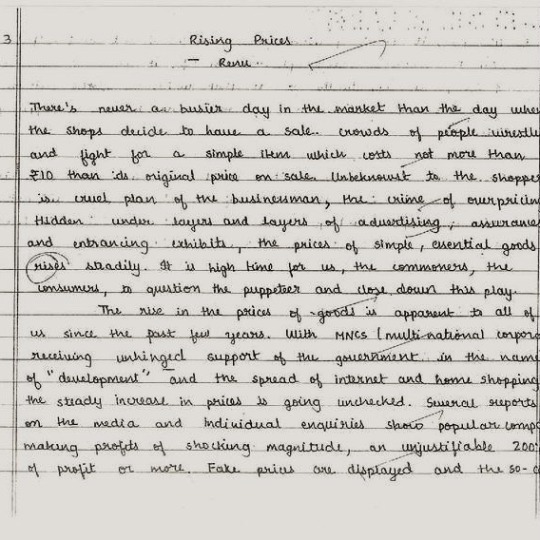 3
Rising Prices
— Renu
There's never a busier day in the market than the day when
the shops decide to have a sale. crowds of people wrestle
and fight for a simple item which costs not more than
₹10 than its original price on sale. Unbeknownst to the shopper
is cruel plan of the businessman, the crime of ourpricin
Hidden under layers and layers of advertising, assurances
and entrancing exhibits, the prices of simple, essential goods
rises steadily. It is high time for us, the commoners, the
consumers, to question the puppeteer and close down this play.
The rise in the prices of goods is apparent to all of
us since the past few years. With MNCs (multi-national corpora
receiving unhinged support of the government in the name
of "development" and the spread of internet and home shopping
the steady increase in prices is going unchecked. Several reports
on the media and individual enquiries show popular comp
making profits of shocking magnitude, an unjustifiable 200
of profit or more. Fake prices are displayed and the so-c